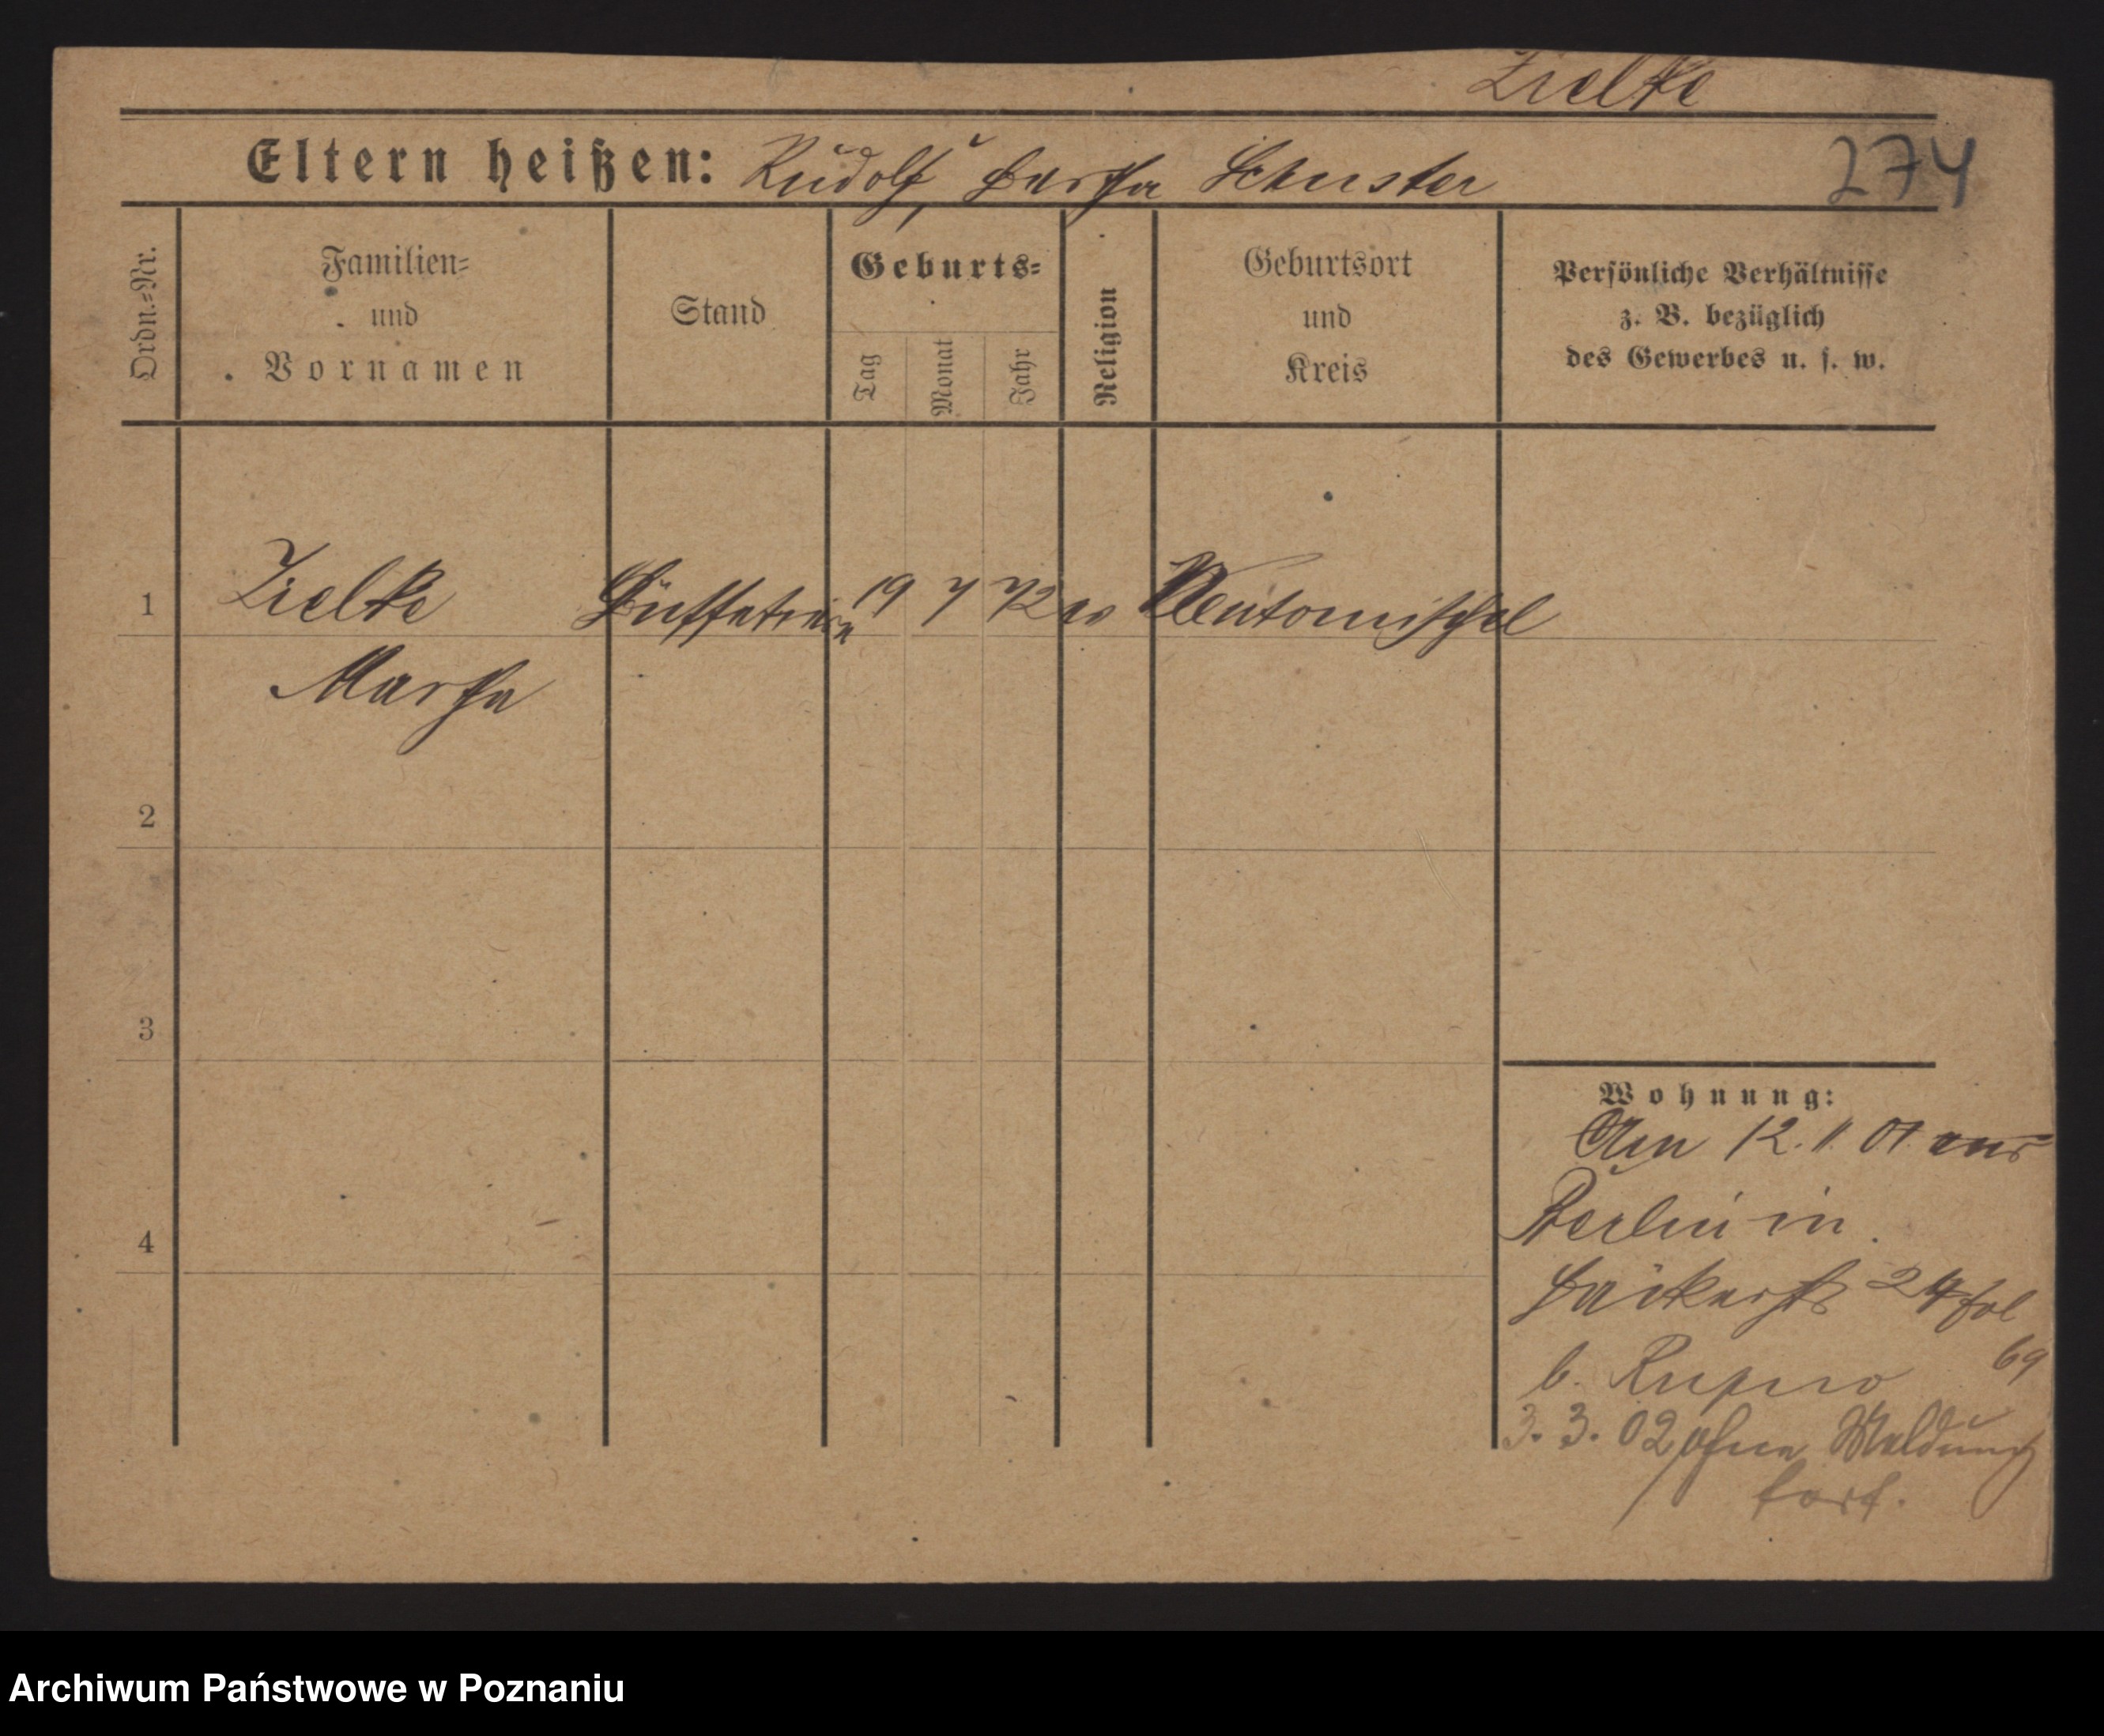 Zielke
Eltern heißen: Rudolf, Bertha Schuster 274
Ordn.=Nr.
Familien=
und
Vornamen
Stand
Geburts=
Tag
Monat
Jahr
Religion
Geburtsort
und
Kreis
Persönliche Verhältnisse
z. B. bezüglich
des Gewerbes u. s. w.
1 Zielke 19 7 72 ev Neutomischel
Martha
2
3
4
Wohnung:
Am 12. 11. 01. aus
Berlin in
Bäckerstr 24 fol
b. 69
3. 3. 02 ohne Meldung
fort.
Archiwum Państwowe w Poznaniu